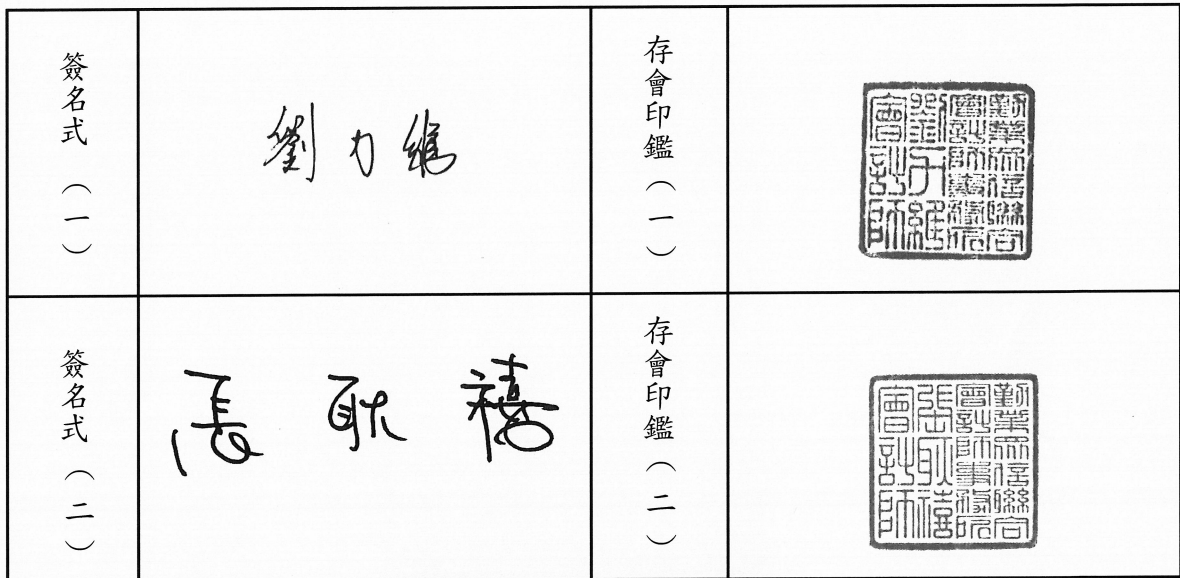 簽名式(一)
劉力維
存會印鑑(一)
勤業眾信聯合
會計師事務所
劉力維
會計師
簽名式(二)
張耿禧
存會印鑑(二)
勤業眾信聯合
會計師事務所
張耿禧
會計師